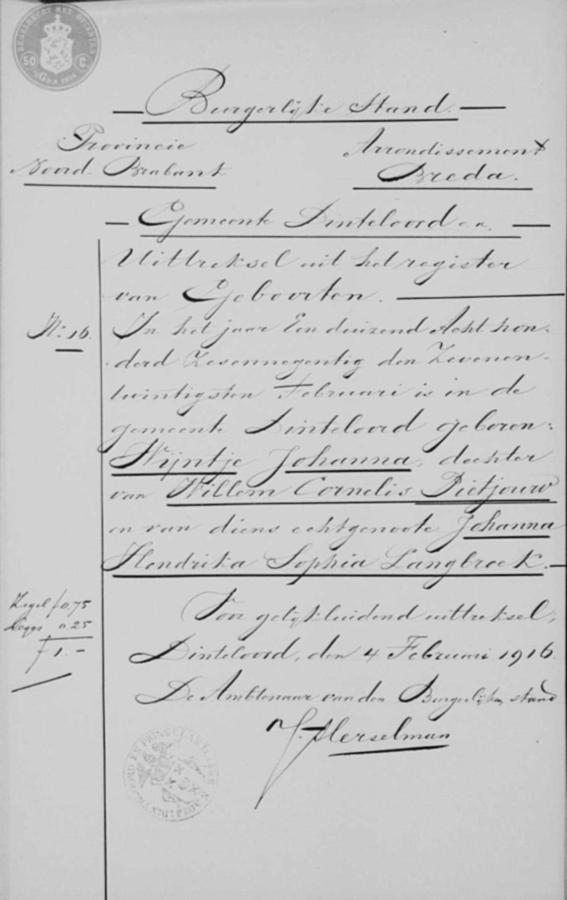 50 C
Burgerlijke Stand.
Provincie
Noord-Brabant
Arrondissement
Breda.
Gemeente Dinteloord c.a.
Uittreksel uit het register
van Geboorten.
No: 16.
In het jaar Een duizend Acht hon-
derd Zesennegentig den Zevenen-
twintigsten Februari is in de
gemeente Dinteloord geboren:
Wijntje Johanna, dochter
van Willem Cornelis Pietjouw
en van diens echtgenoote Johanna
Hendrika Sophia Langbroek.
Zegel f 0,75
Leges " 0.25
f 1.-
Voor gelijkluidend uittreksel,
Dinteloord, den 4 Februari 1916.
De Ambtenaar van den Burgerlijken stand
J. Herselman